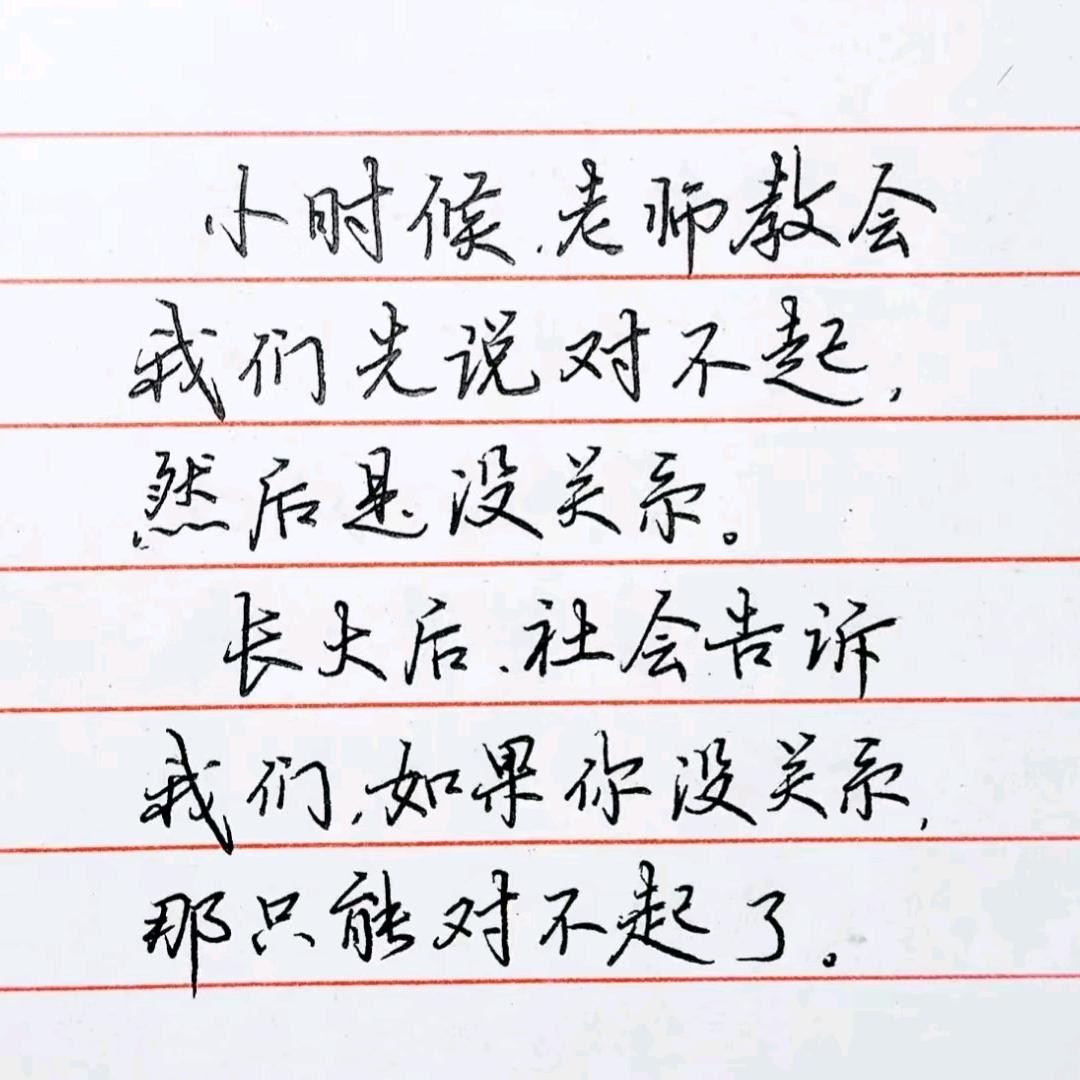 小时候,老师教会
我们先说对不起,
然后是没关系。
长大后,社会告诉
我们,如果你没关系,
那只能对不起了。